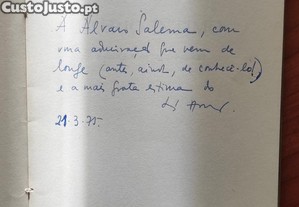 CustoJusto.pt
A Álvaro Salema, com
uma admiração que vem de
longe (ante, ainda, de conhecê-lo!)
e a mais grata estima do
21.3.75.